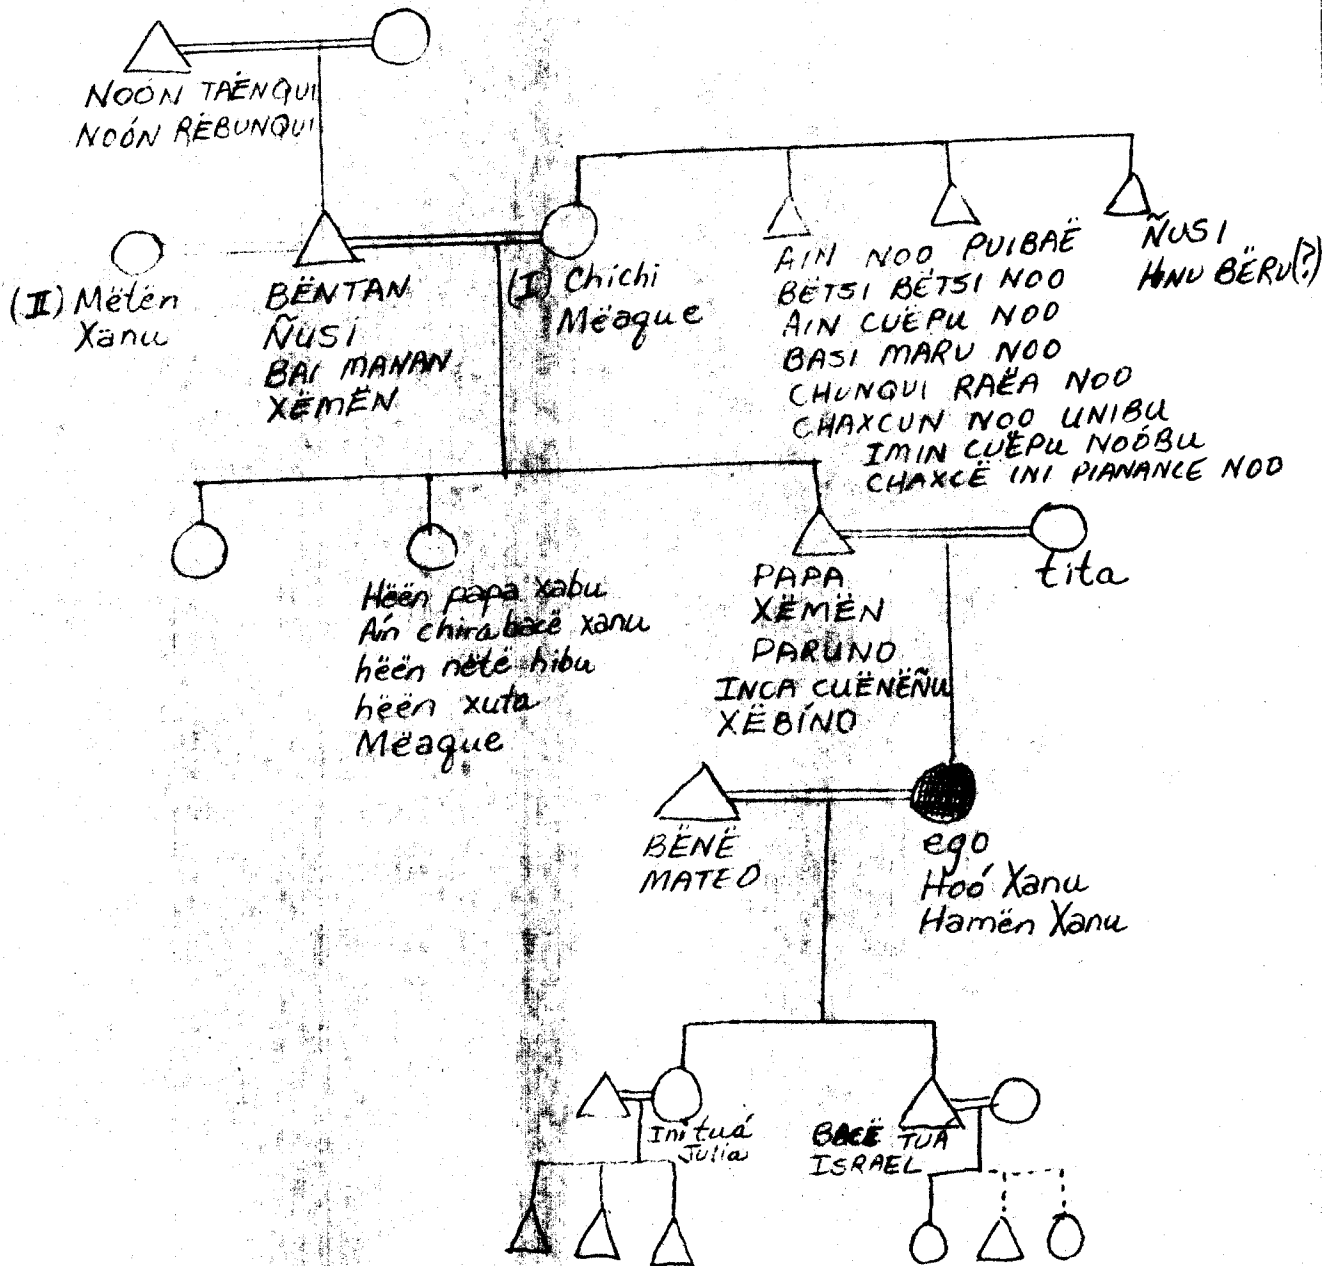 NOÓN TAËNQUI
NOÓN RËBUNQUI
(II) Mëtën
Xanu
BËNTAN
ÑUSI
BAI MANAN
XËMËN
(I) Chichi
Mëaque
AIN NOO PUIBAË
BËTSI BËTSI NOO
AIN CUËPU NOO
BASI MARU NOO
CHUNQUI RAËA NOO
CHAXCUN NOO UNIBU
IMIN CUËPU NOÓBU
CHAXCË INI PIANANCE NOO
ÑUSI
HNU BËRU(?)
Hëën papa xabu
Aín chira bacë xanu
hëën nëtë hibu
hëën xuta
Mëaque
PAPA
XËMËN
PARUNO
INCA CUËNËÑU
XËBÍNO
tita
BËNË
MATEO
ego
Hoó Xanu
Hamën Xanu
Ini tuá
Julia
BACË TUA
ISRAEL